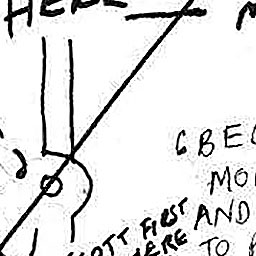 HERE
6 BEC
MO
AND
TO
OTT FIRST
HERE